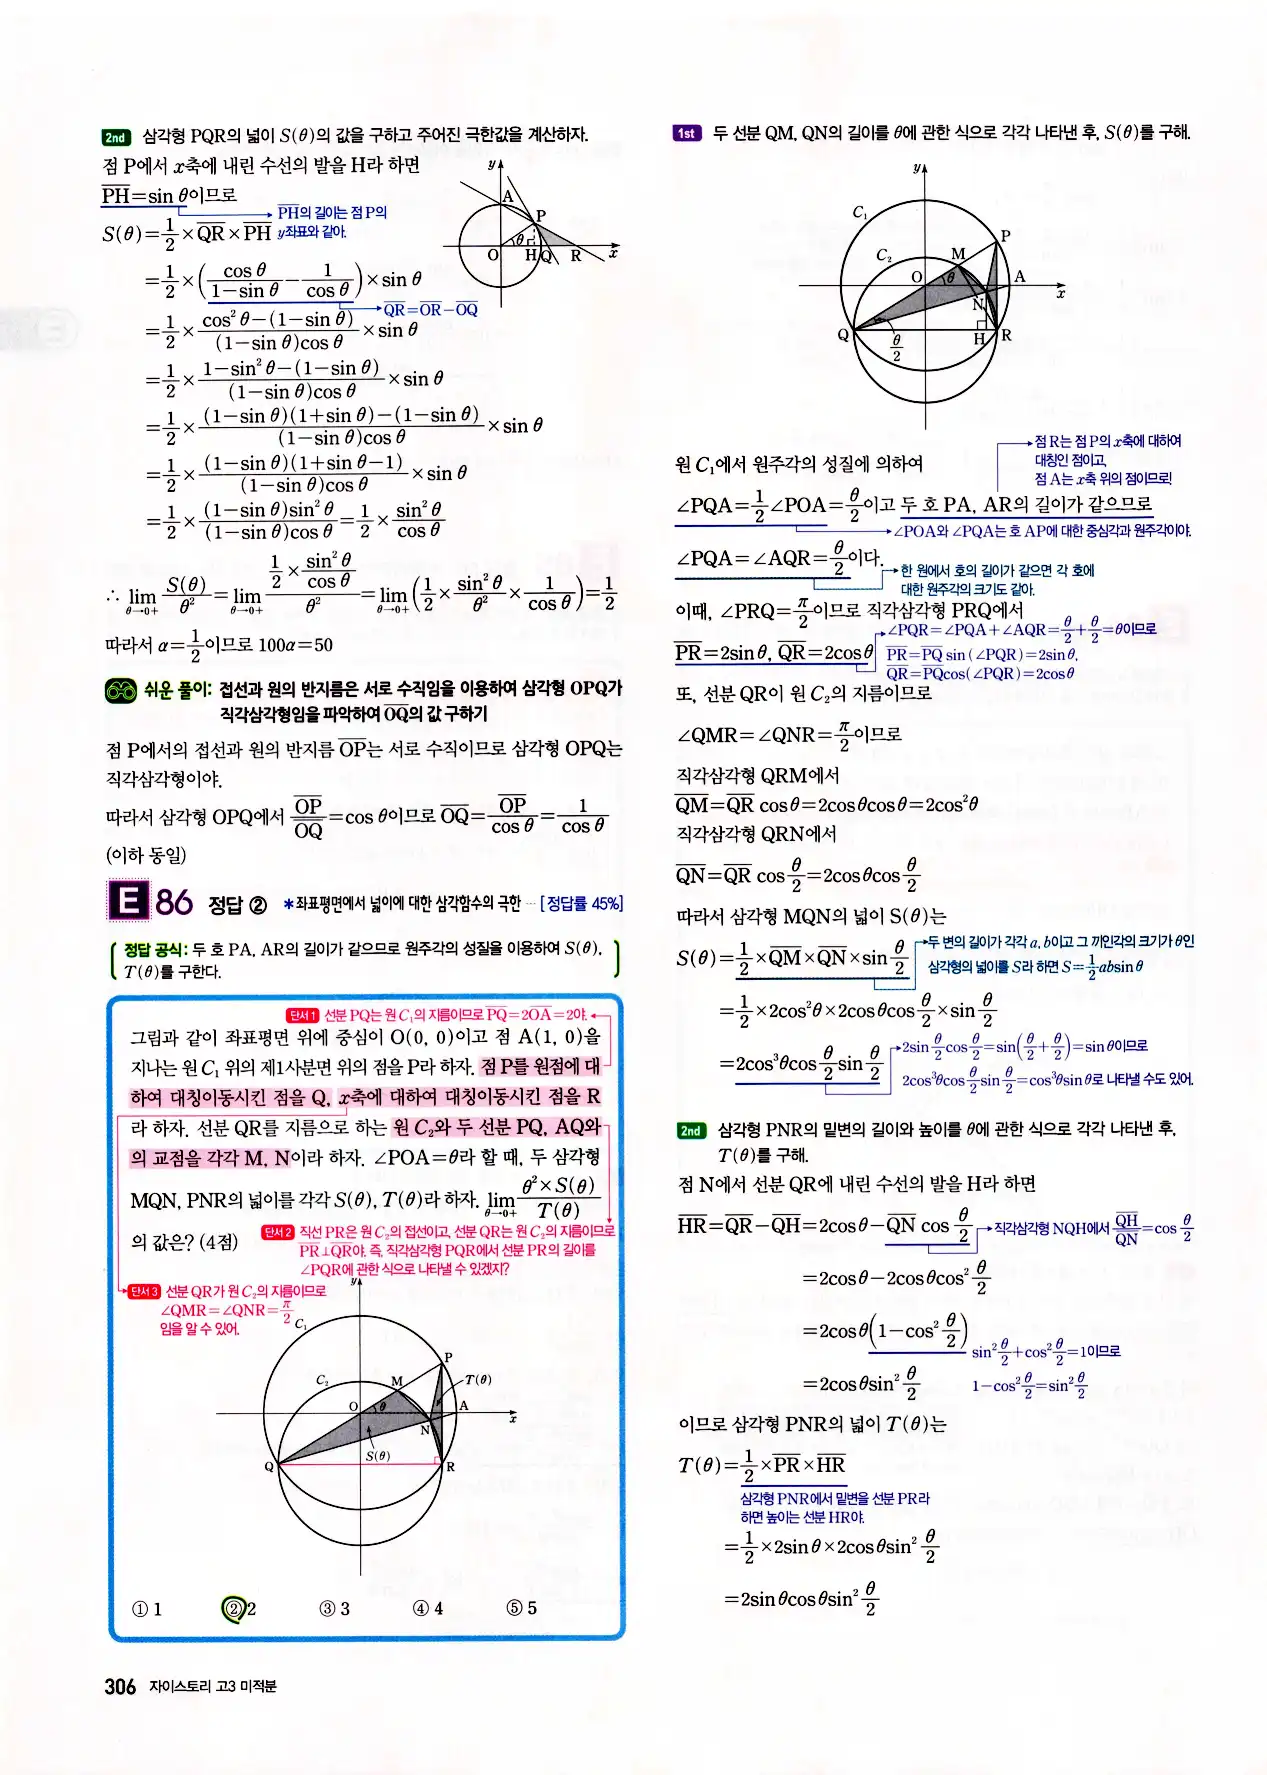 2nd 삼각형 PQR의 넓이 S(θ)의 값을 구하고 주어진 극한값을 계산하자.
점 P에서 x축에 내린 수선의 발을 H라 하면
PH=sin θ이므로
PH의 길이는 점 P의
y좌표와 같아.
S(θ)=1/2×QR×PH
=1/2×(cos θ/(1−sin θ)−1/cos θ)×sin θ
QR=OR−OQ
=1/2×(cos²θ−(1−sin θ))/((1−sin θ)cos θ)×sin θ
=1/2×(1−sin²θ−(1−sin θ))/((1−sin θ)cos θ)×sin θ
=1/2×((1−sin θ)(1+sin θ)−(1−sin θ))/((1−sin θ)cos θ)×sin θ
=1/2×((1−sin θ)(1+sin θ−1))/((1−sin θ)cos θ)×sin θ
=1/2×((1−sin θ)sin²θ)/((1−sin θ)cos θ)=1/2×sin²θ/cos θ
∴ lim θ→0+ S(θ)/θ²=lim θ→0+ (1/2×sin²θ/cos θ)/θ²=lim θ→0+ (1/2×sin²θ/θ²×1/cos θ)=1/2
따라서 α=1/2이므로 100α=50
y A P O θ H Q R x
쉬운 풀이: 접선과 원의 반지름은 서로 수직임을 이용하여 삼각형 OPQ가
직각삼각형임을 파악하여 OQ의 값 구하기
점 P에서의 접선과 원의 반지름 OP는 서로 수직이므로 삼각형 OPQ는
직각삼각형이야.
따라서 삼각형 OPQ에서 OP/OQ=cos θ이므로 OQ=OP/cos θ=1/cos θ
(이하 동일)
E 86 정답 ② *좌표평면에서 넓이에 대한 삼각함수의 극한 [정답률 45%]
정답 공식: 두 호 PA, AR의 길이가 같으므로 원주각의 성질을 이용하여 S(θ),
T(θ)를 구한다.
단서1 선분 PQ는 원 C₁의 지름이므로 PQ=2OA=2야.
그림과 같이 좌표평면 위에 중심이 O(0, 0)이고 점 A(1, 0)을
지나는 원 C₁ 위의 제1사분면 위의 점을 P라 하자. 점 P를 원점에 대
하여 대칭이동시킨 점을 Q, x축에 대하여 대칭이동시킨 점을 R
라 하자. 선분 QR를 지름으로 하는 원 C₂와 두 선분 PQ, AQ와
의 교점을 각각 M, N이라 하자. ∠POA=θ라 할 때, 두 삼각형
MQN, PNR의 넓이를 각각 S(θ), T(θ)라 하자. lim θ→0+ (θ²×S(θ))/T(θ)
의 값은? (4점)
단서2 직선 PR은 원 C₂의 접선이고, 선분 QR는 원 C₂의 지름이므로
PR⊥QR야. 즉, 직각삼각형 PQR에서 선분 PR의 길이를
∠PQR에 관한 식으로 나타낼 수 있겠지?
단서3 선분 QR가 원 C₂의 지름이므로
∠QMR=∠QNR=π/2
임을 알 수 있어.
y C₁ P C₂ M T(θ) O θ A x N S(θ) Q R
① 1 ② 2 ③ 3 ④ 4 ⑤ 5
306 자이스토리 고3 미적분
1st 두 선분 QM, QN의 길이를 θ에 관한 식으로 각각 나타낸 후, S(θ)를 구해.
y C₁ P C₂ M O θ A x N Q θ/2 H R
점 R는 점 P의 x축에 대하여
대칭인 점이고,
점 A는 x축 위의 점이므로!
원 C₁에서 원주각의 성질에 의하여
∠PQA=1/2∠POA=θ/2이고 두 호 PA, AR의 길이가 같으므로
∠POA와 ∠PQA는 호 AP에 대한 중심각과 원주각이야.
∠PQA=∠AQR=θ/2이다.
한 원에서 호의 길이가 같으면 각 호에
대한 원주각의 크기도 같아.
이때, ∠PRQ=π/2이므로 직각삼각형 PRQ에서
∠PQR=∠PQA+∠AQR=θ/2+θ/2=θ이므로
PR=2sin θ, QR=2cos θ
PR=PQ sin(∠PQR)=2sin θ,
QR=PQcos(∠PQR)=2cos θ
또, 선분 QR이 원 C₂의 지름이므로
∠QMR=∠QNR=π/2이므로
직각삼각형 QRM에서
QM=QR cos θ=2cos θcos θ=2cos²θ
직각삼각형 QRN에서
QN=QR cos θ/2=2cos θcos θ/2
따라서 삼각형 MQN의 넓이 S(θ)는
S(θ)=1/2×QM×QN×sin θ/2
두 변의 길이가 각각 a, b이고 그 끼인각의 크기가 θ인
삼각형의 넓이를 S라 하면 S=1/2absin θ
=1/2×2cos²θ×2cos θcos θ/2×sin θ/2
=2cos³θcos θ/2 sin θ/2
2sin θ/2 cos θ/2=sin(θ/2+θ/2)=sin θ이므로
2cos³θcos θ/2 sin θ/2=cos³θsin θ로 나타낼 수도 있어.
2nd 삼각형 PNR의 밑변의 길이와 높이를 θ에 관한 식으로 각각 나타낸 후,
T(θ)를 구해.
점 N에서 선분 QR에 내린 수선의 발을 H라 하면
HR=QR−QH=2cos θ−QN cos θ/2
직각삼각형 NQH에서 QH/QN=cos θ/2
=2cos θ−2cos θcos² θ/2
=2cos θ(1−cos² θ/2)
sin² θ/2+cos² θ/2=1이므로
=2cos θsin² θ/2
1−cos² θ/2=sin² θ/2
이므로 삼각형 PNR의 넓이 T(θ)는
T(θ)=1/2×PR×HR
삼각형 PNR에서 밑변을 선분 PR라
하면 높이는 선분 HR야.
=1/2×2sin θ×2cos θsin² θ/2
=2sin θcos θsin² θ/2